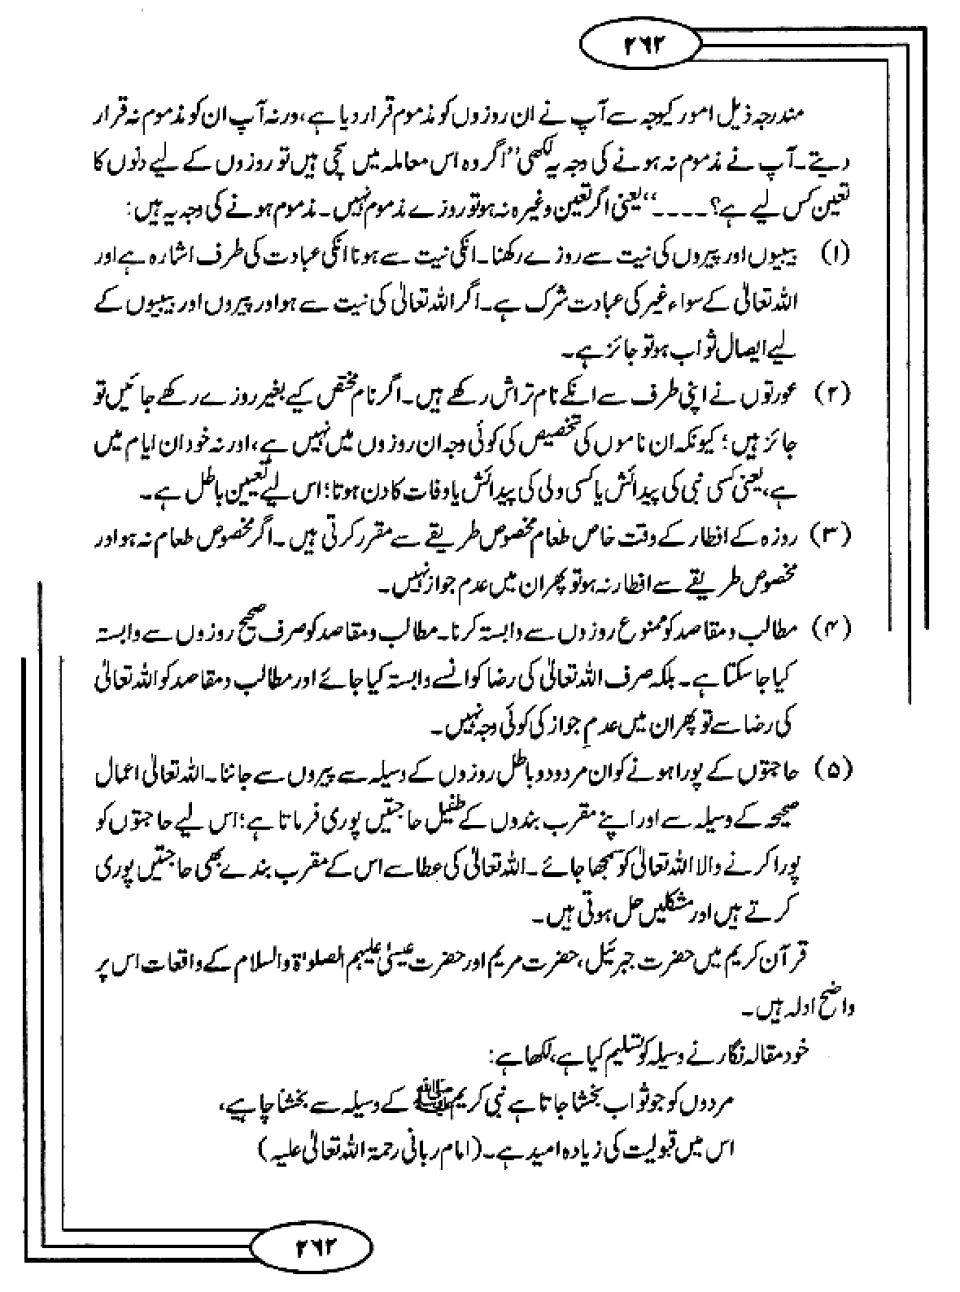 ۲۶۲
مندرجہ ذیل امور کیوجہ سے آپ نے ان روزوں کو مذموم قرار دیا ہے، ورنہ آپ ان کو مذموم نہ قرار
دیتے۔ آپ نے مذموم نہ ہونے کی وجہ یہ لکھی ’’اگر وہ اس معاملہ میں سچی ہیں تو روزوں کے لیے دنوں کا
تعین کس لیے ہے؟۔۔۔۔‘‘ یعنی اگر تعین وغیرہ نہ ہو تو روزے مذموم نہیں۔ مذموم ہونے کی وجہ یہ ہیں:
(۱) بیبیوں اور پیروں کی نیت سے روزے رکھنا۔ انکی نیت سے ہونا انکی عبادت کی طرف اشارہ ہے اور
اللہ تعالیٰ کے سواء غیر کی عبادت شرک ہے۔ اگر اللہ تعالیٰ کی نیت سے ہو اور پیروں اور بیبیوں کے
لیے ایصال ثواب ہو تو جائز ہے۔
(۲) عورتوں نے اپنی طرف سے انکے نام تراش رکھے ہیں۔ اگر نام مختص کیے بغیر روزے رکھے جائیں تو
جائز ہیں؛ کیونکہ ان ناموں کی تخصیص کی کوئی وجہ ان روزوں میں نہیں ہے، اور نہ خود ان ایام میں
ہے، یعنی کسی نبی کی پیدائش یا کسی ولی کی پیدائش یا وفات کا دن ہوتا؛ اس لیے تعیین باطل ہے۔
(۳) روزہ کے افطار کے وقت خاص طعام مخصوص طریقے سے مقرر کرتی ہیں۔ اگر مخصوص طعام نہ ہو اور
مخصوص طریقے سے افطار نہ ہو تو پھر ان میں عدم جواز نہیں۔
(۴) مطالب و مقاصد کو ممنوع روزوں سے وابستہ کرنا۔ مطالب و مقاصد کو صرف صحیح روزوں سے وابستہ
کیا جا سکتا ہے۔ بلکہ صرف اللہ تعالیٰ کی رضا کو انسے وابستہ کیا جائے اور مطالب و مقاصد کو اللہ تعالیٰ
کی رضا سے تو پھر ان میں عدمِ جواز کی کوئی وجہ نہیں۔
(۵) حاجتوں کے پورا ہونے کو ان مردود و باطل روزوں کے وسیلہ سے پیروں سے جاننا۔ اللہ تعالیٰ اعمال
صحیحہ کے وسیلہ سے اور اپنے مقرب بندوں کے طفیل حاجتیں پوری فرماتا ہے؛ اس لیے حاجتوں کو
پورا کرنے والا اللہ تعالیٰ کو سمجھا جائے۔ اللہ تعالیٰ کی عطا سے اس کے مقرب بندے بھی حاجتیں پوری
کرتے ہیں اور مشکلیں حل ہوتی ہیں۔
قرآن کریم میں حضرت جبرئیل، حضرت مریم اور حضرت عیسیٰ علیہم الصلوٰۃ والسلام کے واقعات اس پر
واضح ادلہ ہیں۔
خود مقالہ نگار نے وسیلہ کو تسلیم کیا ہے، لکھا ہے:
مردوں کو جو ثواب بخشا جاتا ہے نبی کریم ﷺ کے وسیلہ سے بخشنا چاہیے،
اس میں قبولیت کی زیادہ امید ہے۔ (امام ربانی رحمۃ اللہ تعالیٰ علیہ)
۲۶۲